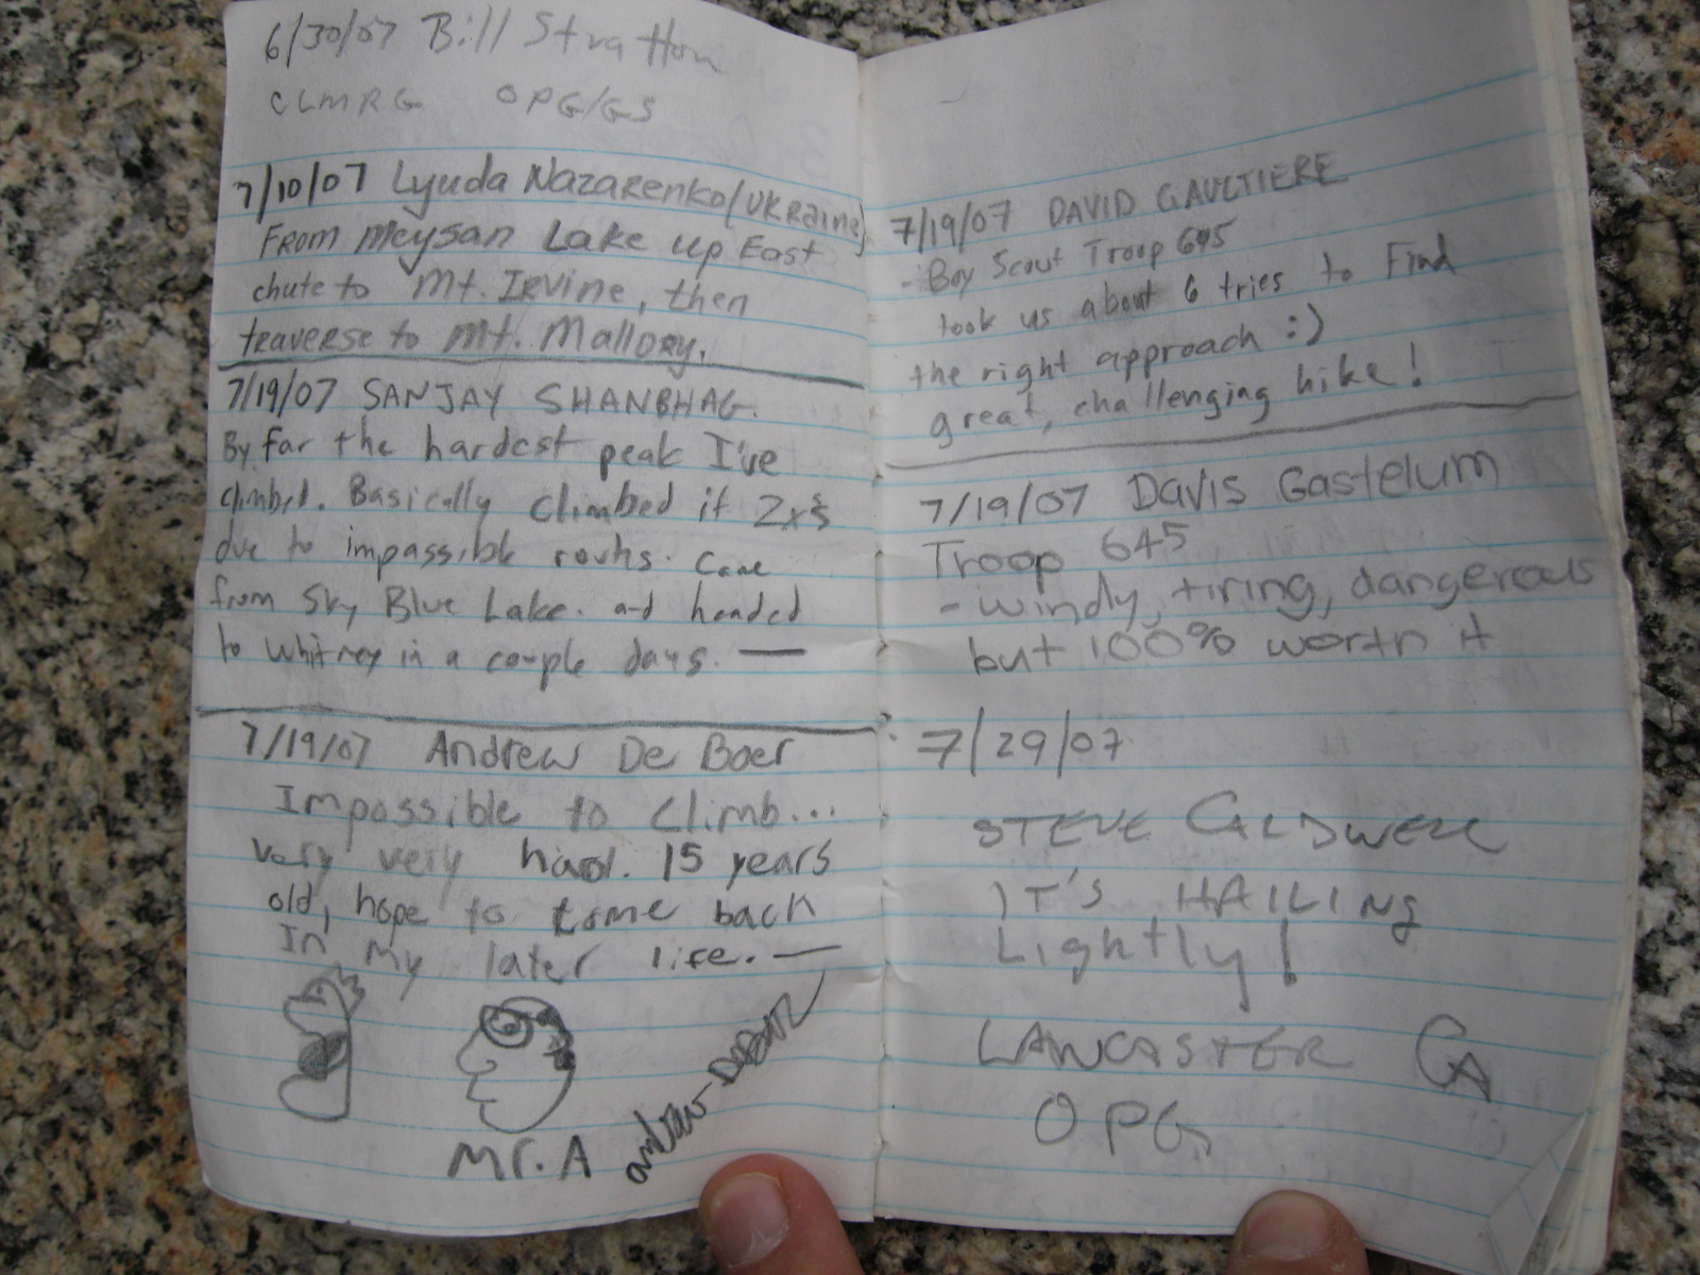 6/30/07 Bill Stratton
CLMRG OPG/GS
7/10/07 Lyuda Nazarenko (Ukraine)
From Meysan Lake up East
chute to Mt. Irvine, then
traverse to Mt. Mallory.
7/19/07 SANJAY SHANBHAG.
By far the hardest peak I've
climbed. Basically climbed it 2x's
due to impassible routs. Came
from Sky Blue Lake. and headed
to Whitney in a couple days. —
7/19/07 Andrew De Boer
Impossible to Climb...
very very hard. 15 years
old, hope to come back
In my later life. —
Mr. A
7/19/07 DAVID GAULTIERE
- Boy Scout Troop 645
took us about 6 tries to Find
the right approach :)
great, challenging hike!
7/19/07 Davis Gastelum
Troop 645
- windy, tiring, dangerous
but 100% worth it
7/29/07
STEVE CALDWELL
IT'S HAILING
Lightly!
LANCASTER CA
OPG